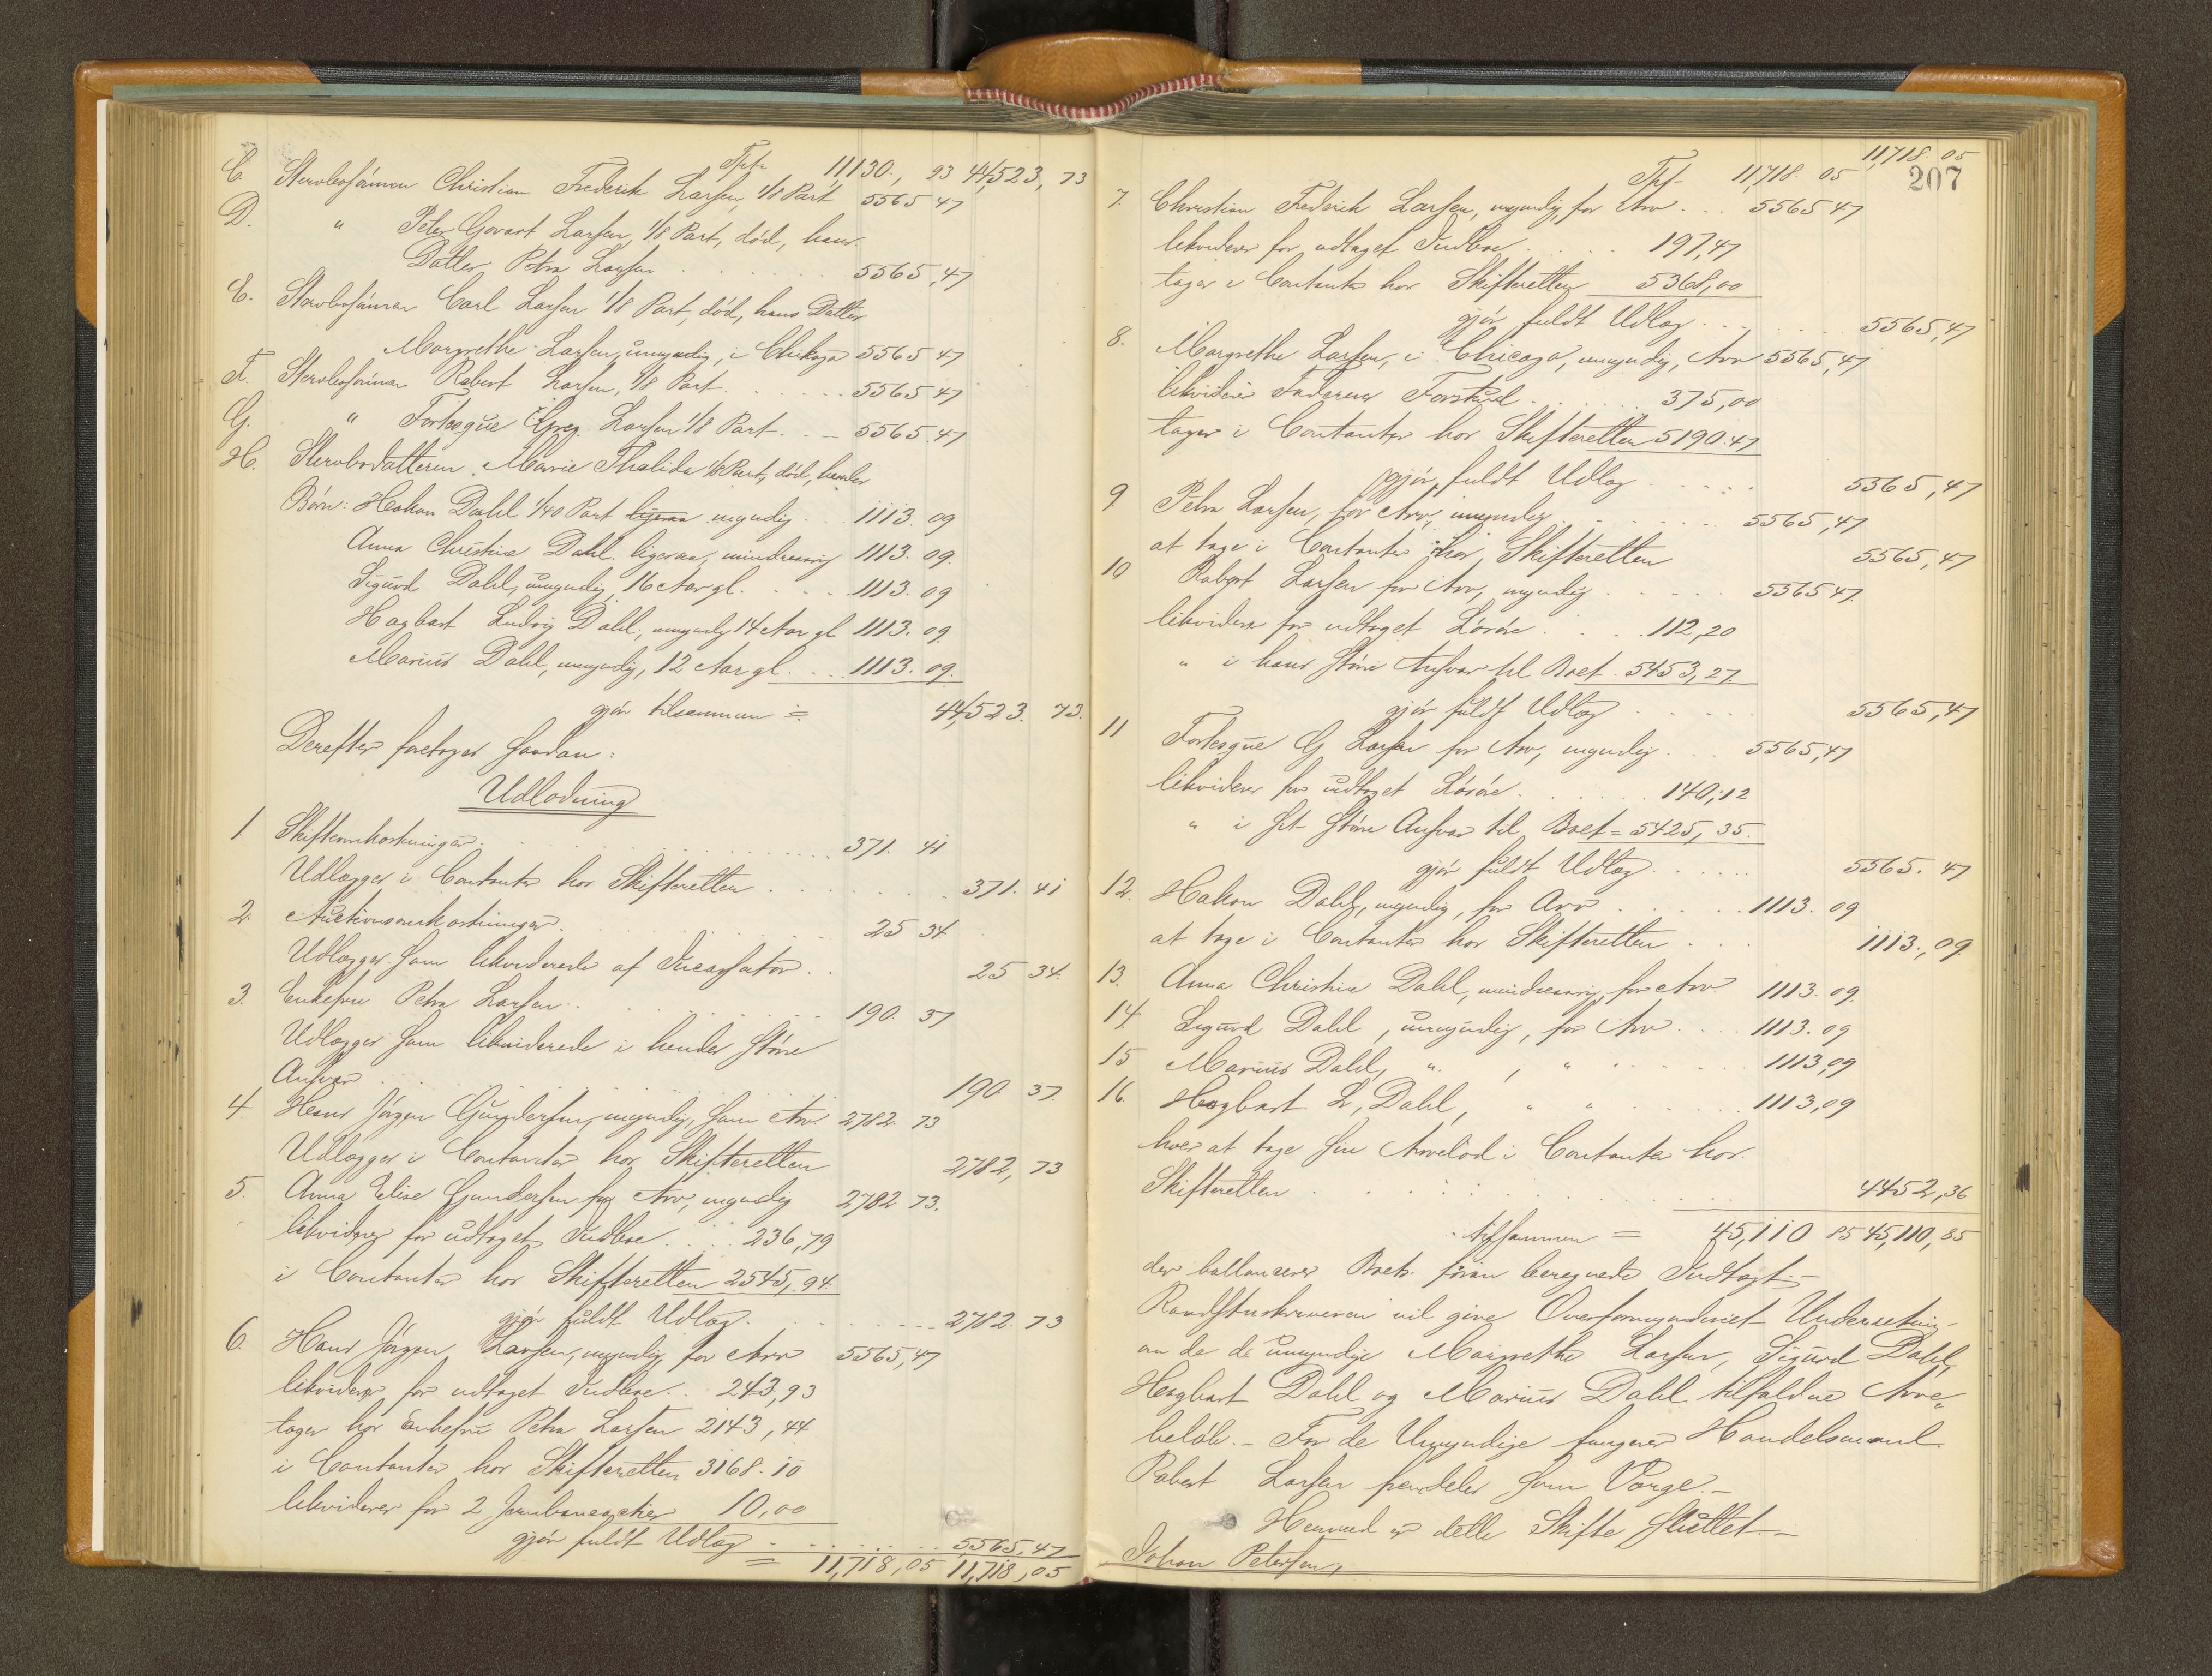 Trpt. 11130., 93 44,523, 73
C. Stervbosönnen Christian Frederik Larsen, 1/8 Part 5565 47
D. " Peter Govart Larsen, 1/8 Part, död, hans
Datter Petra Larsen . . . . . . 5565,47
E. Stervbosönnen Carl Larsen 1/8 Part, död, hans Datter
Margrethe Larsen, umyndig, i Chikago 5565 47
F. Stervbosönnen Robert Larsen, 1/8 Part . . . . 5565 47
G. " Fortesque Greg. Larsen 1/8 Part . . - 5565.47
H. Stervbodatteren Marie Thalida 1/8 Part, död, hendes
Börn: Hakon Dahl 1/40 Part myndig . . 1113. 09
Anna Christine Dahl ligesaa, mindreaarig 1113. 09.
Sigurd Dahl, umyndig, 16 Aar gl. . . . . 1113. 09
Hagbart Ludvig Dahl, umyndig 14 Aar gl 1113. 09
Marius Dahl, umyndig, 12 Aar gl. . . . 1113. 09.
gjör tilsammen = 44,523. 73.
Derefter foretages saadan:
Udlodning
1. Skifteomkostninger . . . . . . 371. 41
Udlægges i Contanter hos Skifteretten . . . . . 371. 41
2. Auctionsomkostninger . . . . . . 25 34
Udlægges som likviderede af Incassator . . 25 34.
3. Enkefru Petra Larsen . . . . . . 190. 37
Udlægges som likviderede i hendes större
Ansvar . . . . . . 190. 37.
4. Hans Jörgen Gundersen, myndig, som Arv. 2782. 73
Udlægges i Contanter hos Skifteretten 2782, 73
5. Anna Elise Gundersen for Arv, myndig 2782 73.
likviderer for udtaget Indboe . . . 236,79
i Contanter hos Skifteretten 2545,94.
gjör fuldt Udlæg . . . . . . 2782. 73
6. Hans Jörgen Larsen, myndig, for Arv 5565,47
likviderer for udtaget Indboe . . 243,93
tager hos Enkefru Petra Larsen 2143,44
i Contanter hos Skifteretten 3168.10
likviderer for 2 Jernbaneactier 10,00
gjör fuldt Udlæg . . . . . . 5565,47
= 11,718,05 11,718,05
11,718. 05
Trpt- 11,718. 05 207
7. Christian Frederik Larsen, myndig, for Arv . . . 5565 47
likviderer for udtaget Indboe . . . . 197,47
tager i Contanter hos Skifteretten 5368,00
gjör fuldt Udlæg . . . . . . 5565,47
8. Margrethe Larsen, i Chicago, umyndig, Arv 5565,47
likviderer Faderens Forskud . . . . . . 375,00
tager i Contanter hos Skifteretten 5190.47
gjör fuldt Udlæg . . . . . 5565,47
9 Petra Larsen, for Arv, umyndig . . . . . . 5565,47
at tage i Contanter hos Skifteretten 5565,47
10 Robert Larsen for Arv, myndig . . . . . 5565 47.
likviderer for udtaget Lösöre . . . . 112,20
" i hans större Ansvar til Boet . 5453,27.
gjör fuldt Udlæg . . . . . 5565,47
11 Fortesque G. Larsen for Arv, myndig . . . 5565,47
likviderer for udtaget Lösöre . . . . . . 140,12
" i sit större Ansvar til Boet = 5425,35.
gjör fuldt Udlæg . . . . . . 5565. 47.
12. Hakon Dahl, myndig, for Arv . . . . . . 1113. 09
at tage i Contanter hos Skifteretten . . . 1113., 09.
13. Anna Christine Dahl, mindreaarig, for Arv 1113. 09.
14. Sigurd Dahl, umyndig, for Arv . . . . 1113. 09
15 Marius Dahl, " , " . . . . . . 1113,09
16. Hagbart L, Dahl, " " . . . . . . 1113,09
hver at tage sin Arvelod i Contanter hos
Skifteretten . . . . . . . . . 4452,36
tilsammen = 45,110 85 45,110,85
der ballancerer Boets foran beregnede Indtægt.-
Raadstuskriveren vil give Overformynderiet Underretning
om de de umyndige Margrethe Larsen, Sigurd Dahl,
Hagbart Dahl og Marius Dahl tilfaldne Arve„
belöb.- For de Umyndige fungerer Handelsmand
Robert Larsen fremdeles som Værge.-
Hermed er dette Skifte sluttet.-
Johan Petersen,